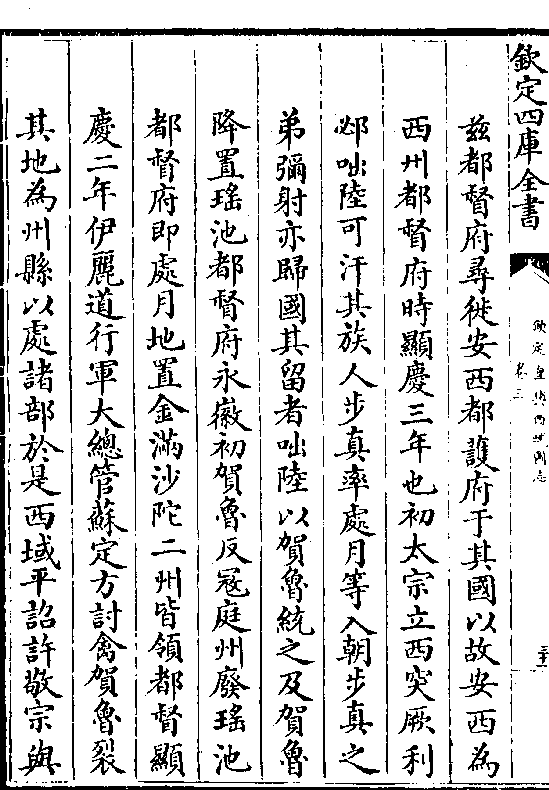 欽定四庫全書
欽定皇輿西域圖志
卷三
茲都督府尋徙安西都護府于其國以故安西為
西州都督府時顯慶三年也初太宗立西突厥利
邲咄陸可汗其族人步真率處月等入朝步真之
弟彌射亦歸國其留者咄陸以賀魯統之及賀魯
降置瑤池都督府永徽初賀魯反冦庭州廢瑤池
都督府即處月地置金滿沙陀二州皆領都督顯
慶二年伊麗道行軍大總管蘇定方討禽賀魯裂
其地為州縣以處諸部於是西域平詔許敬宗與